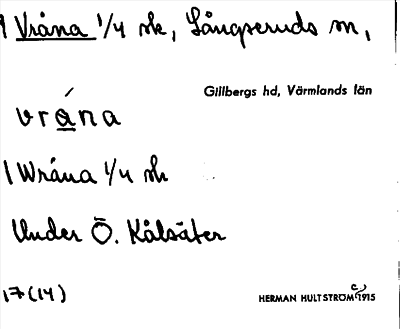 1 Vråna 1/4 sk, Långseruds sn,
Gillbergs hd, Värmlands län
vrána
1 Wråna 1/4 sk
Under Ö. Kålsäter
17(14)
HERMAN HULTSTRÖM C) 1915